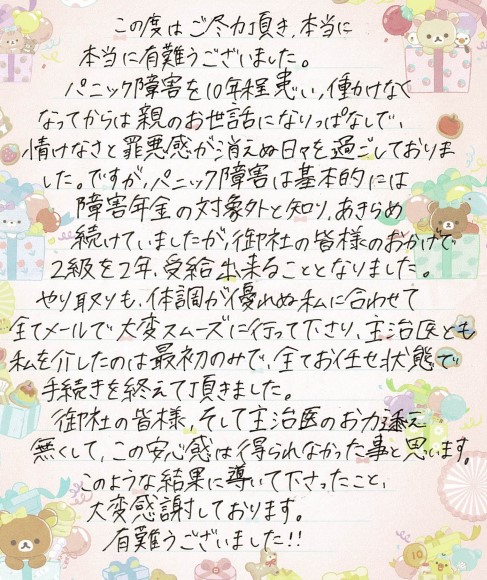 この度はご尽力頂き、本当に
本当に有難うございました。
パニック障害を10年程患い、働かけなく
なってからは親のお世話になりっぱなしで、
情けなさと罪悪感が消えぬ日々を過ごしておりま
した。ですが、パニック障害は基本的には
障害年金の対象外と知り、あきらめ
続けていましたが、御社の皆様のおかげで
2級を2年、受給出来ることとなりました。
やり取りも、体調が優れぬ私に合わせて
全てメールで大変スムーズに行って下さり、主治医とも
私を介したのは最初のみで、全てお任せ状態で
手続きを終えて頂きました。
御社の皆様、そして主治医のお力添え
無くして、この安心感は得られなかった事と思います。
このような結果に導いて下さったこと、
大変感謝しております。
有難うございました!!
10